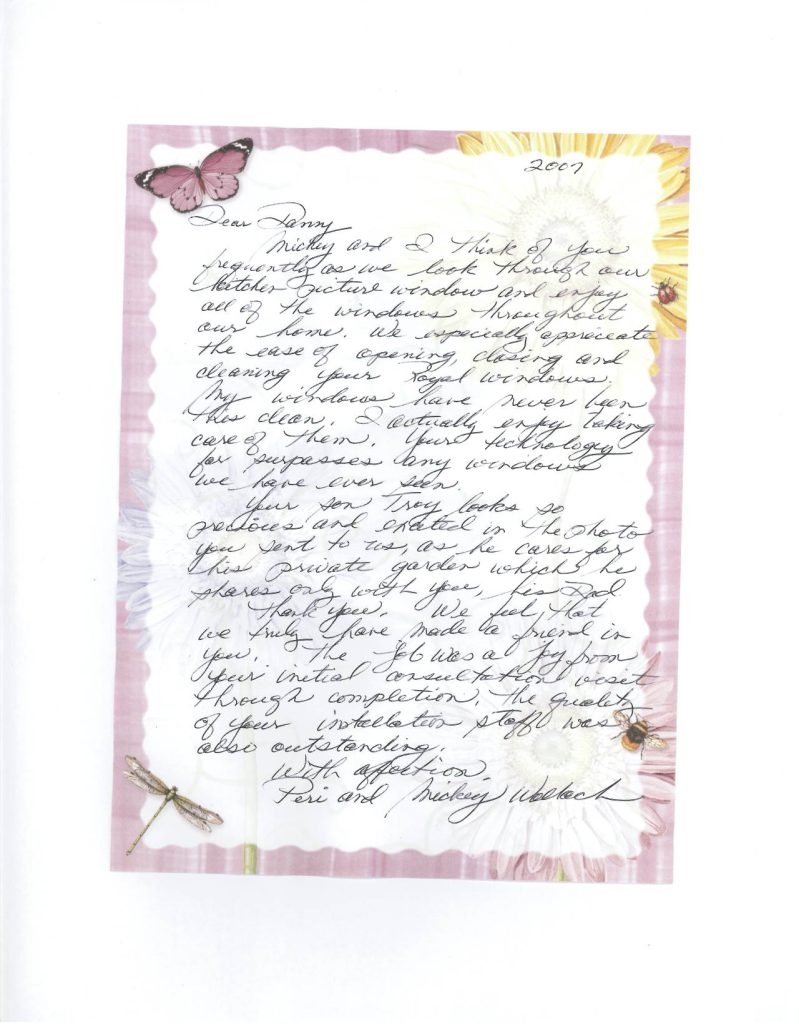 2007
Dear Danny
Mickey and I think of you
frequently as we look through our
kitchen picture window and enjoy
all of the windows throughout
our home. We especially appreciate
the ease of opening, closing and
cleaning your Royal windows.
My windows have never been
this clean. I actually enjoy taking
care of them. Your technology
far surpasses any windows
we have ever seen.
Your son Troy looks so
precious and elated in the photo
you sent to us, as he cares for
his private garden which he
shares only with you, his Dad.
Thank you. We feel that
we truly have made a friend in
you. The job was a joy from
your initial consultation visit
through completion. The quality
of your installation staff was
also outstanding.
With affection,
Peri and Mickey Wallach